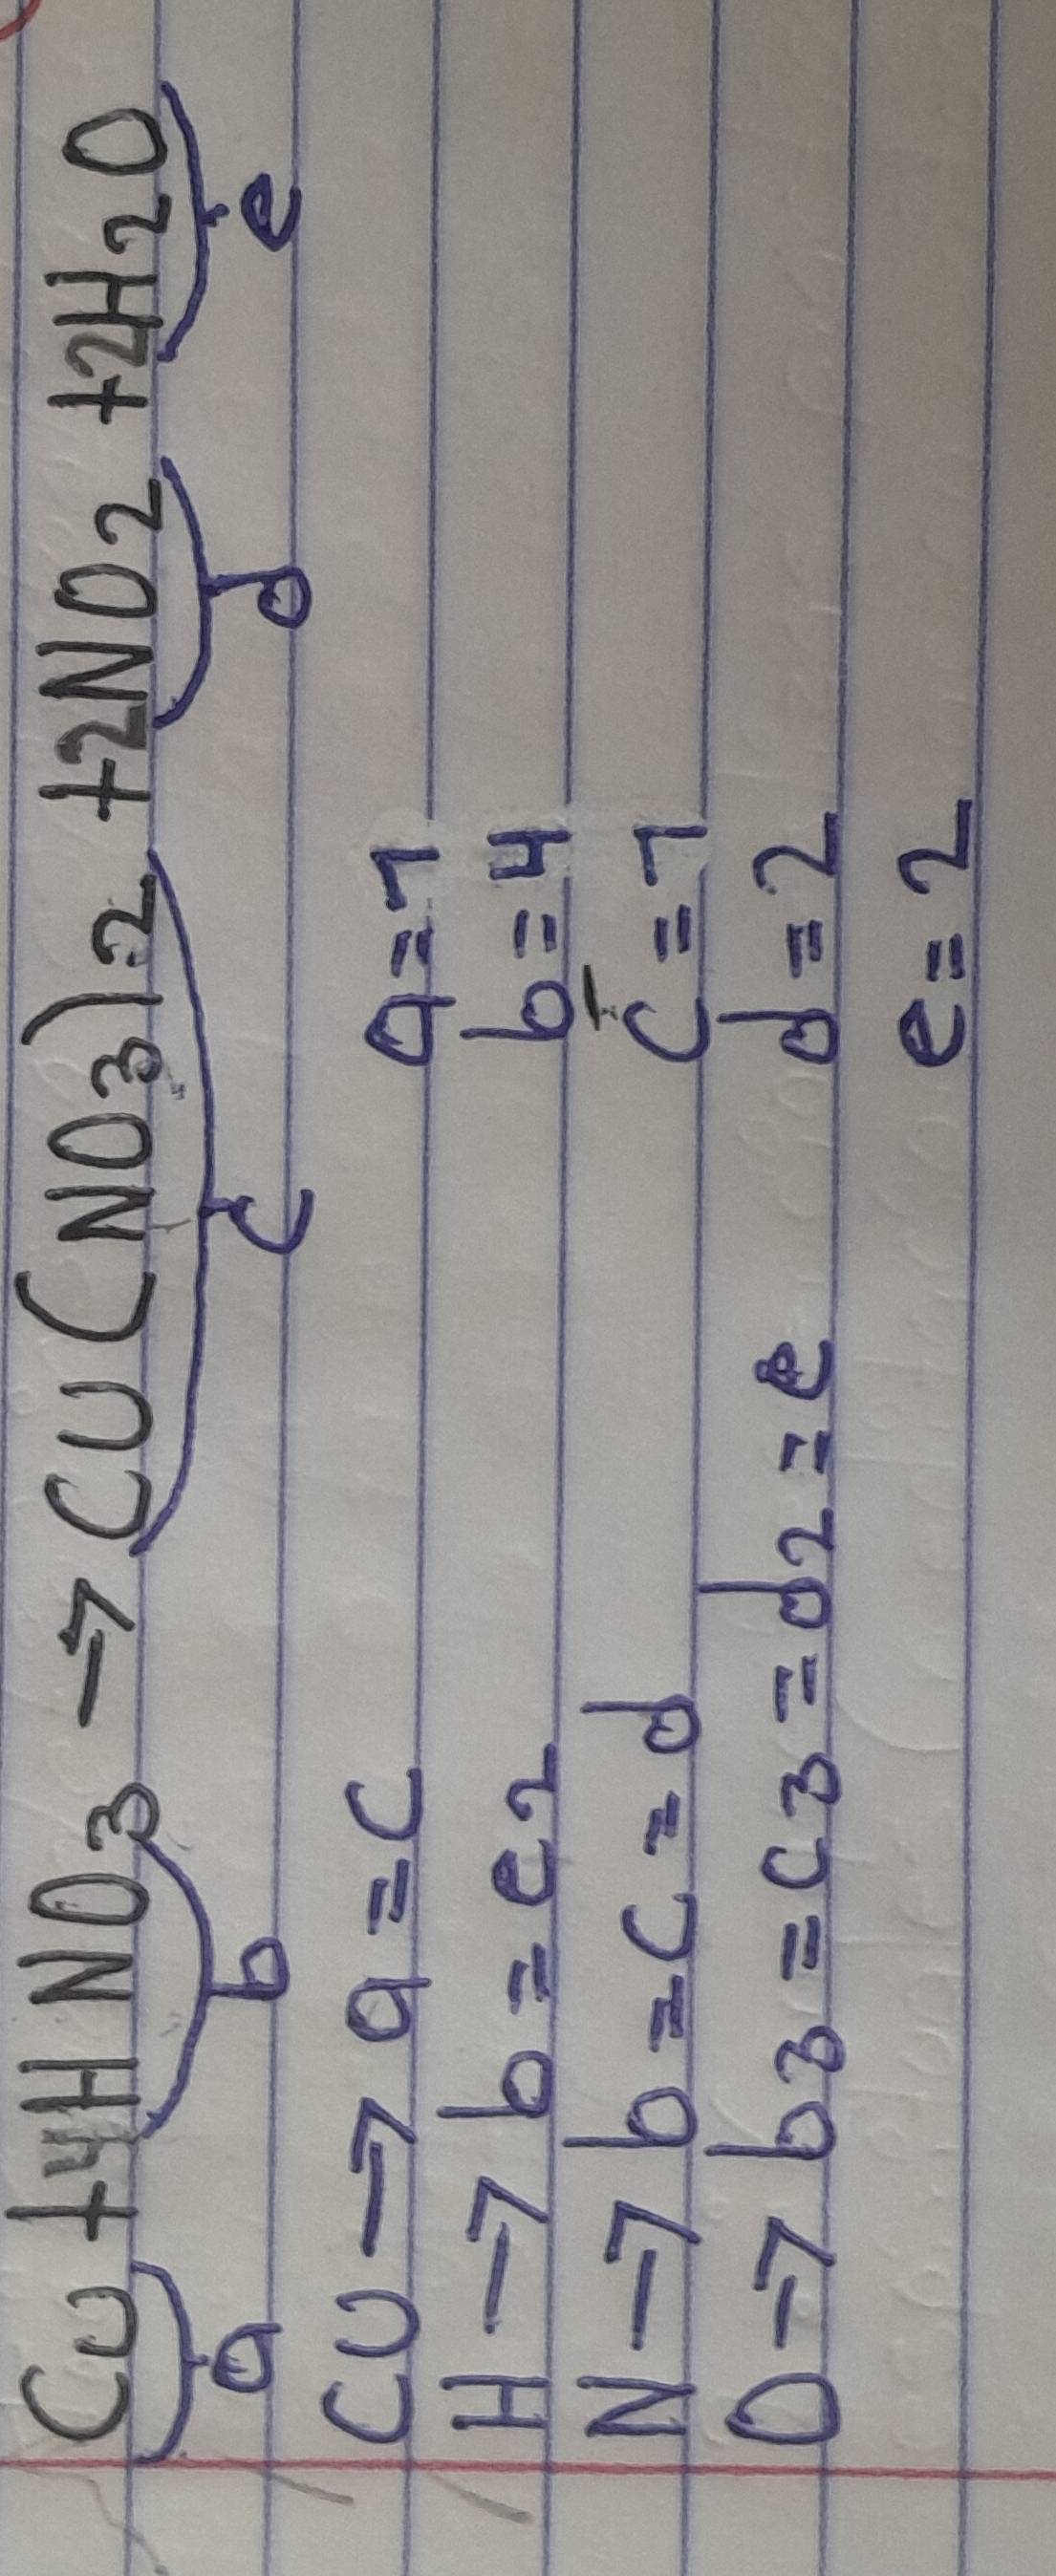 Cu + 4HNO3 → CU(NO3)2 + 2NO2 + 2H2O
a b c d e
CU → a = c a = 1
H → b = e2 b = 4
N → b = c = d c = 1
O → b3 = c3 = d2 = e d = 2
e = 2